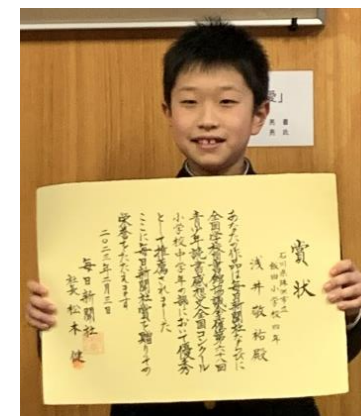 賞状
石川県珠洲市立
飯田小学校四年
浅井敬祐殿
あなたの作品は毎日新聞社ならびに
全国学校図書館協議会主催第六八回
青少年読書感想文全国コンクール
小学校中学年の部において優秀
として推薦されました
ここに毎日新聞社賞を贈りその
栄誉をたたえます
二〇二三年二月三日
毎日新聞社
社長 松木健